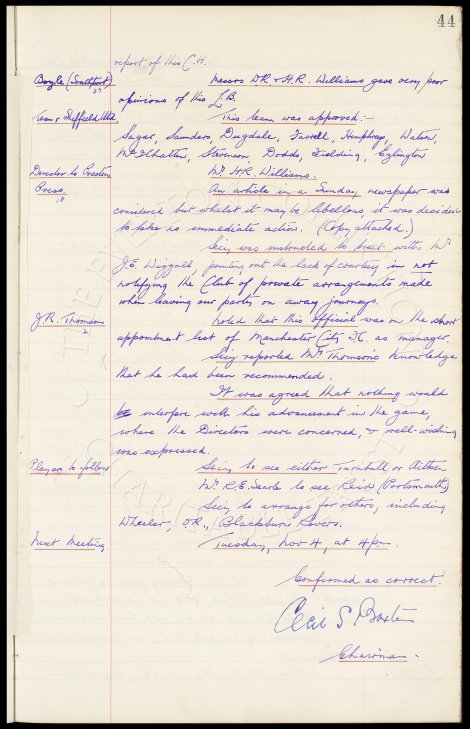 44
report of this C.H.
Boyle (Southport) Messrs DR & H.R. Williams gave very poor
opinions of this L.B.
Team v Sheffield Utd. This team was approved:-
Sagar, Saunders, Dugdale, Farrell, Humphreys, Watson,
McIlhatton, Stevenson, Dodds, Fielding, Eglington
Director to Preston Mr H.R. Williams.
Press. An article in a Sunday newspaper was
considered but whilst it may be libellous, it was decided
to take no immediate action. (Copy attached.)
Secy was instructed to treat with Mr
J.E. Wiggall, pointing out the lack of courtesy in not
notifying the Club of private arrangements made
when leaving our party on away journeys.
J.R. Thomson Noted that this official was on the short
appointment list of Manchester City FC. as manager.
Secy reported Mr Thomson's knowledge
that he had been recommended.
It was agreed that nothing would
interfere with his advancement in the game,
where the Directors were concerned, & well-wishing
was expressed.
Players to follow Secy to see either Turnbull or Aitken
Mr R.E. Searle to see Reid (Portsmouth)
Secy to arrange for others, including
Wheeler, OR., Blackburn Rovers.
Next Meeting Tuesday, Nov 4, at 4pm.
Confirmed as correct.
Cecil S Baxter
Chairman.